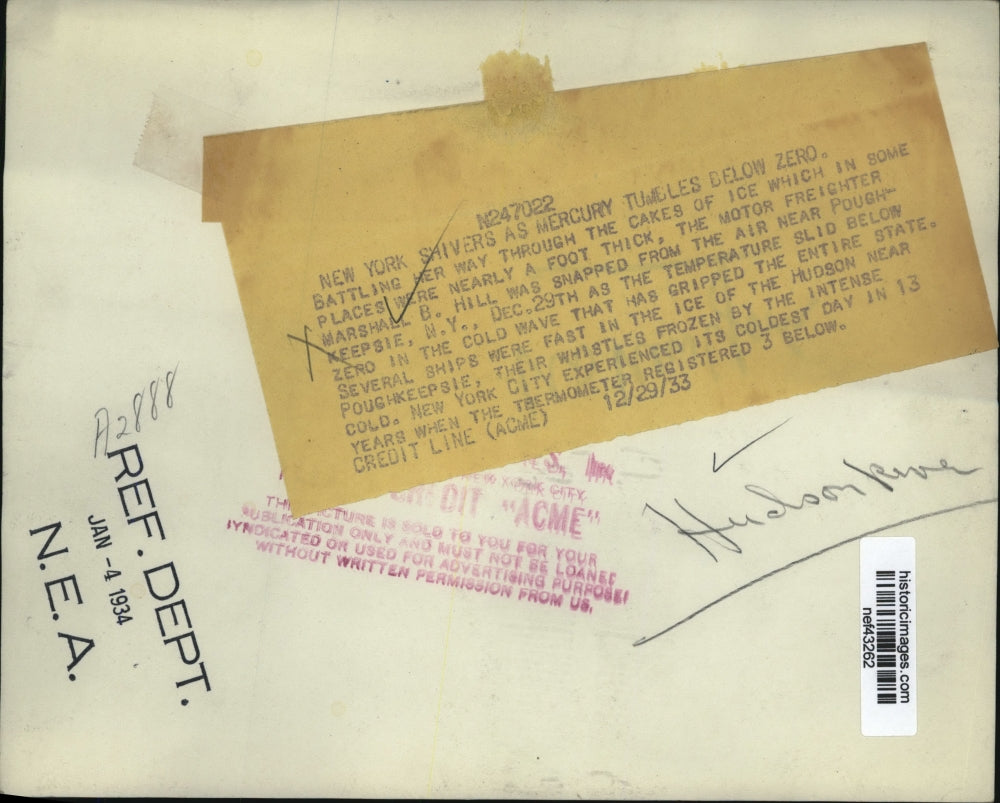 N247022
NEW YORK SHIVERS AS MERCURY TUMBLES BELOW ZERO.
BATTLING HER WAY THROUGH THE CAKES OF ICE WHICH IN SOME
PLACES WERE NEARLY A FOOT THICK, THE MOTOR FREIGHTER
MARSHALL B. HILL WAS SNAPPED FROM THE AIR NEAR POUGH-
KEEPSIE, N.Y., DEC.29TH AS THE TEMPERATURE SLID BELOW
ZERO IN THE COLD WAVE THAT HAS GRIPPED THE ENTIRE STATE.
SEVERAL SHIPS WERE FAST IN THE ICE OF THE HUDSON NEAR
POUGHKEEPSIE, THEIR WHISTLES FROZEN BY THE INTENSE
COLD. NEW YORK CITY EXPERIENCED ITS COLDEST DAY IN 13
YEARS WHEN THE THERMOMETER REGISTERED 3 BELOW.
CREDIT LINE (ACME) 12/29/33
NEW YORK CITY
"ACME"
PICTURE IS SOLD TO YOU FOR YOUR
PUBLICATION ONLY AND MUST NOT BE LOANED
SYNDICATED OR USED FOR ADVERTISING PURPOSES
WITHOUT WRITTEN PERMISSION FROM US.
A2888
REF. DEPT.
JAN -4 1934
N.E.A.
Hudson River
historicimages.com
nef43262